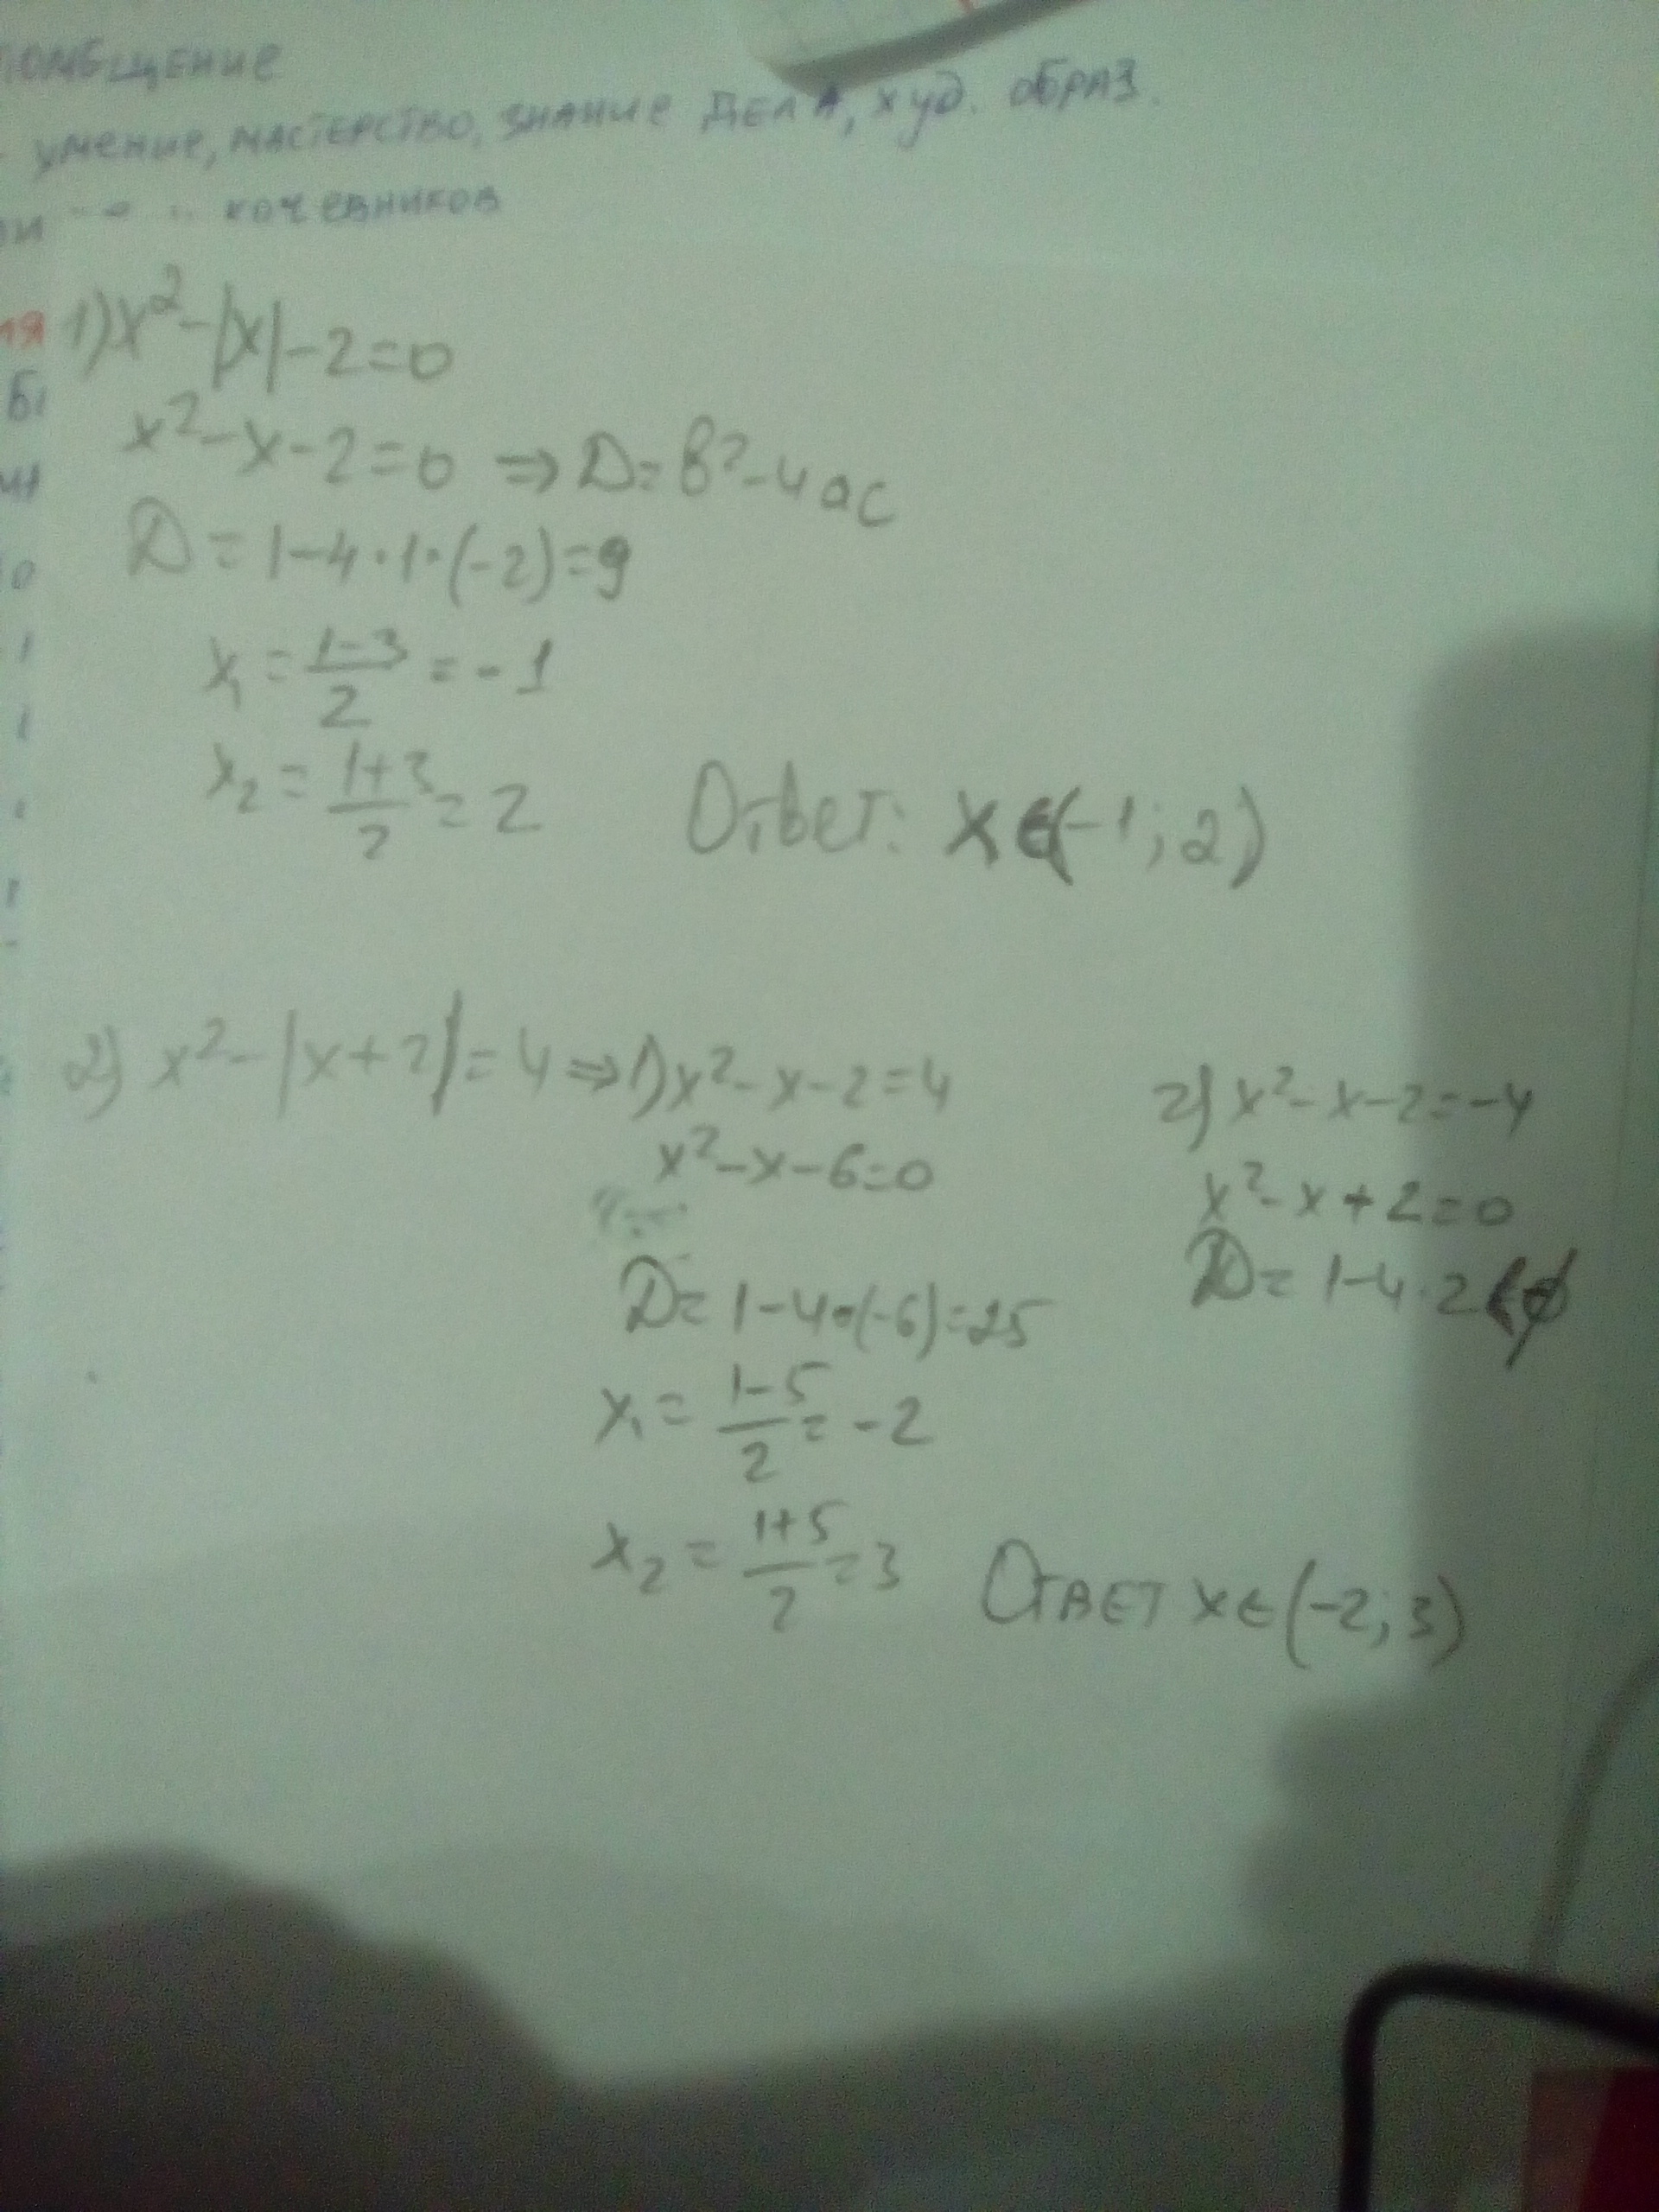 помещение
- умение, мастерство, знание дела, худ. образ.
кочевников
1) x² - |x| - 2 = 0
x² - x - 2 = 0 ⇒ D = b² - 4ac
D = 1 - 4 · 1 · (-2) = 9
x₁ = (1-3)/2 = -1
x₂ = (1+3)/2 = 2
Ответ: x ∈ (-1; 2)
2) x² - |x + 2| = 4 ⇒ 1) x² - x - 2 = 4
x² - x - 6 = 0
D = 1 - 4 · (-6) = 25
x₁ = (1-5)/2 = -2
x₂ = (1+5)/2 = 3
2) x² - x - 2 = -4
x² - x + 2 = 0
D = 1 - 4 · 2 < ∅
Ответ x ∈ (-2; 3)